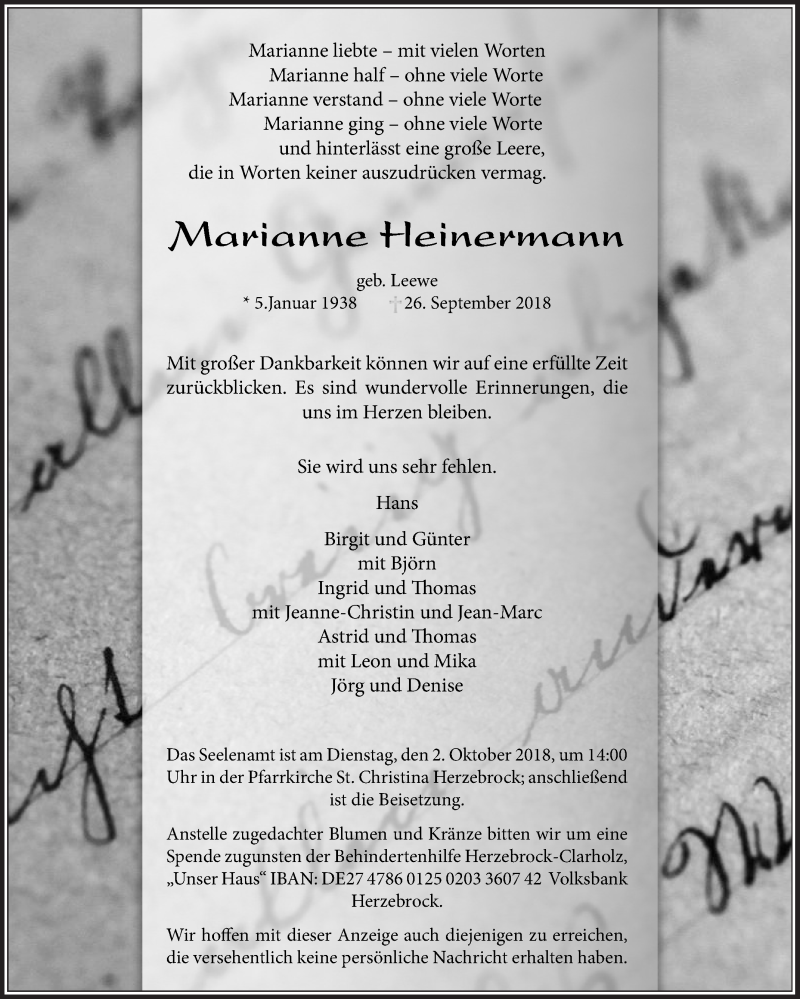 Marianne liebte – mit vielen Worten
Marianne half – ohne viele Worte
Marianne verstand – ohne viele Worte
Marianne ging – ohne viele Worte
und hinterlässt eine große Leere,
die in Worten keiner auszudrücken vermag.
Marianne Heinermann
geb. Leewe
* 5.Januar 1938 †26. September 2018
Mit großer Dankbarkeit können wir auf eine erfüllte Zeit
zurückblicken. Es sind wundervolle Erinnerungen, die
uns im Herzen bleiben.
Sie wird uns sehr fehlen.
Hans
Birgit und Günter
mit Björn
Ingrid und Thomas
mit Jeanne-Christin und Jean-Marc
Astrid und Thomas
mit Leon und Mika
Jörg und Denise
Das Seelenamt ist am Dienstag, den 2. Oktober 2018, um 14:00
Uhr in der Pfarrkirche St. Christina Herzebrock; anschließend
ist die Beisetzung.
Anstelle zugedachter Blumen und Kränze bitten wir um eine
Spende zugunsten der Behindertenhilfe Herzebrock-Clarholz,
„Unser Haus“ IBAN: DE27 4786 0125 0203 3607 42 Volksbank
Herzebrock.
Wir hoffen mit dieser Anzeige auch diejenigen zu erreichen,
die versehentlich keine persönliche Nachricht erhalten haben.